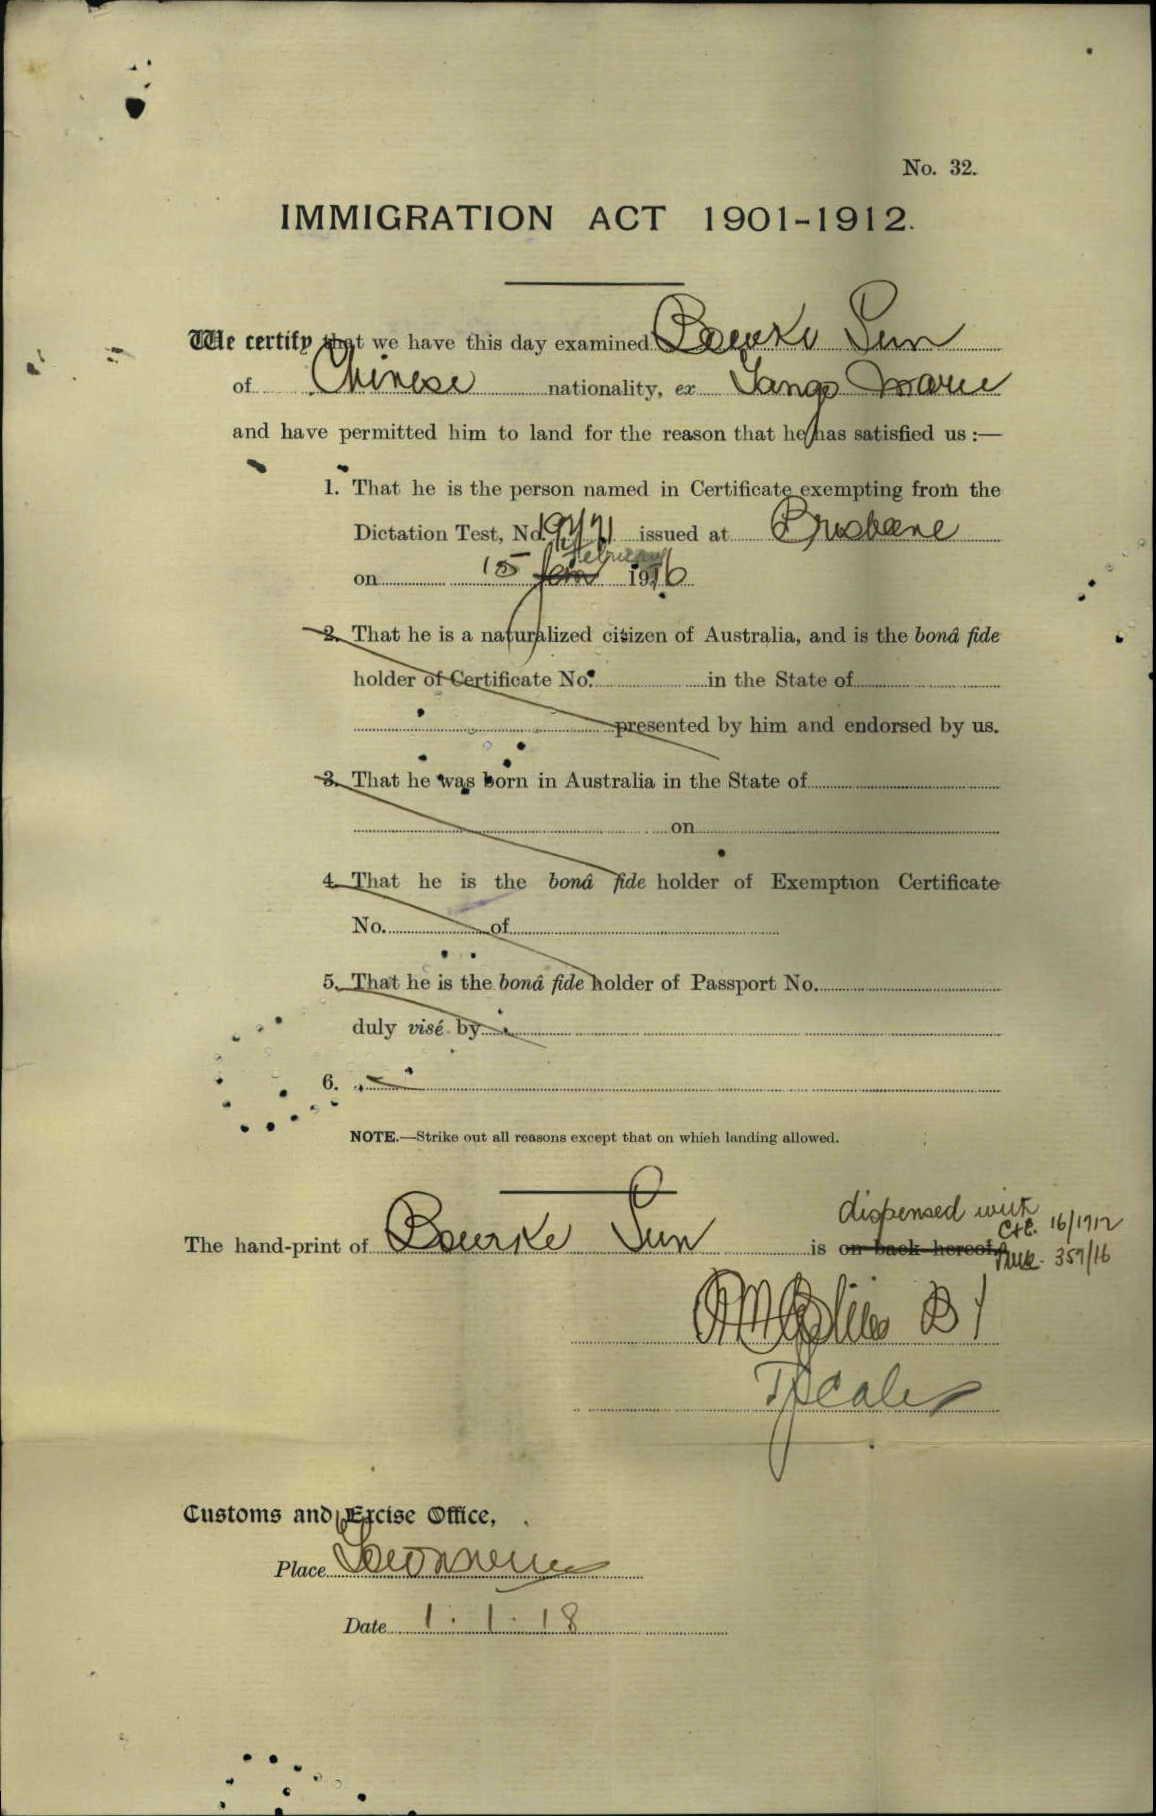 No. 32.
IMMIGRATION ACT 1901-1912.
We certify that we have this day examined Bourke Sun
of Chinese nationality, ex Tango Maru
and have permitted him to land for the reason that he has satisfied us :—
1. That he is the person named in Certificate exempting from the
Dictation Test, No. issued at Brisbane
February
on 15 Jan 1916
2. That he is a naturalized citizen of Australia, and is the bonâ fide
holder of Certificate No. in the State of
presented by him and endorsed by us.
3. That he was born in Australia in the State of
on
4. That he is the bonâ fide holder of Exemption Certificate
No. of
5. That he is the bonâ fide holder of Passport No.
duly visé by
6.
NOTE.—Strike out all reasons except that on which landing allowed.
dispensed with
C+E. 16/1912
The hand-print of Bourke Sun is on back hereof.
359/16
Customs and Excise Office,
Place
Date 1.1.18